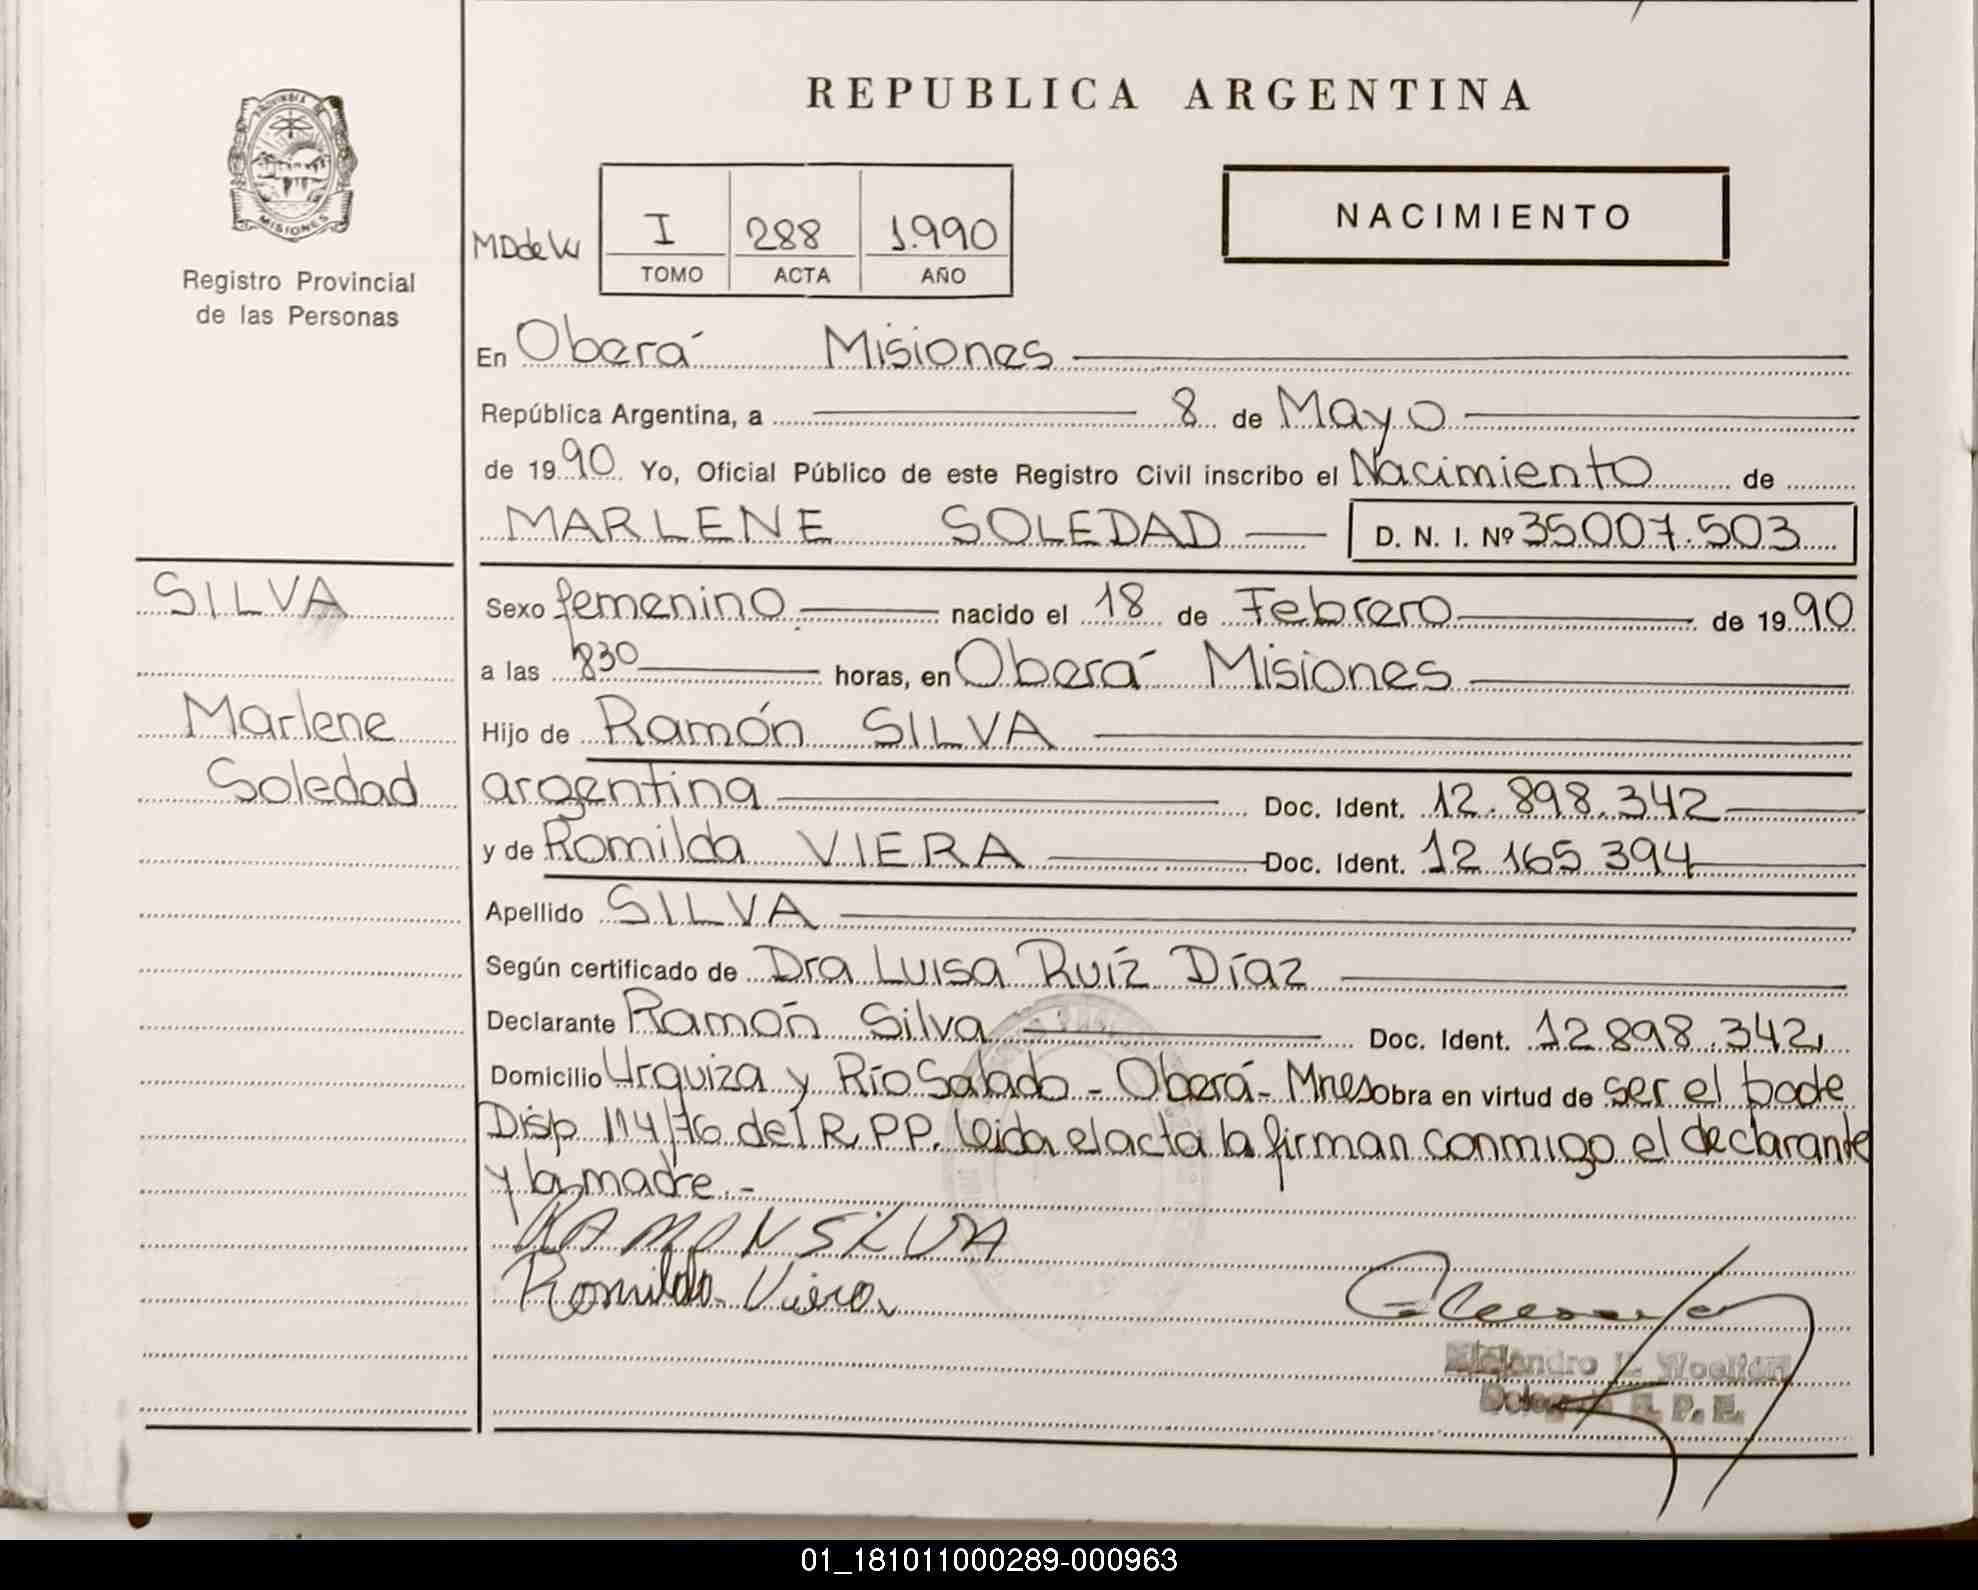 REPUBLICA ARGENTINA
PROVINCIA DE
MISIONES
Registro Provincial
de las Personas
NACIMIENTO
MDdeW
I 288 1.990
TOMO ACTA AÑO
En Oberá Misiones
República Argentina, a 8 de Mayo
de 1990 Yo, Oficial Público de este Registro Civil inscribo el Nacimiento de
MARLENE SOLEDAD D. N. I. Nº 35.007.503
SILVA
Marlene
Soledad
Sexo femenino nacido el 18 de Febrero de 1990
a las 830 horas, en Oberá Misiones
Hijo de Ramón SILVA
argentina Doc. Ident. 12.898.342
y de Romilda VIERA Doc. Ident. 12 165 394
Apellido SILVA
Según certificado de Dra Luisa Ruíz Díaz
Declarante Ramón Silva Doc. Ident. 12 898.342
Domicilio Urquiza y Río Salado - Oberá - Mnes obra en virtud de ser el padre
Disp 114/76 del R.P.P. leida el acta la firman conmigo el declarante
y la madre.-
RAMON SILVA
Romilda Viera
Alejandro
R. P. P.
01_181011000289-000963